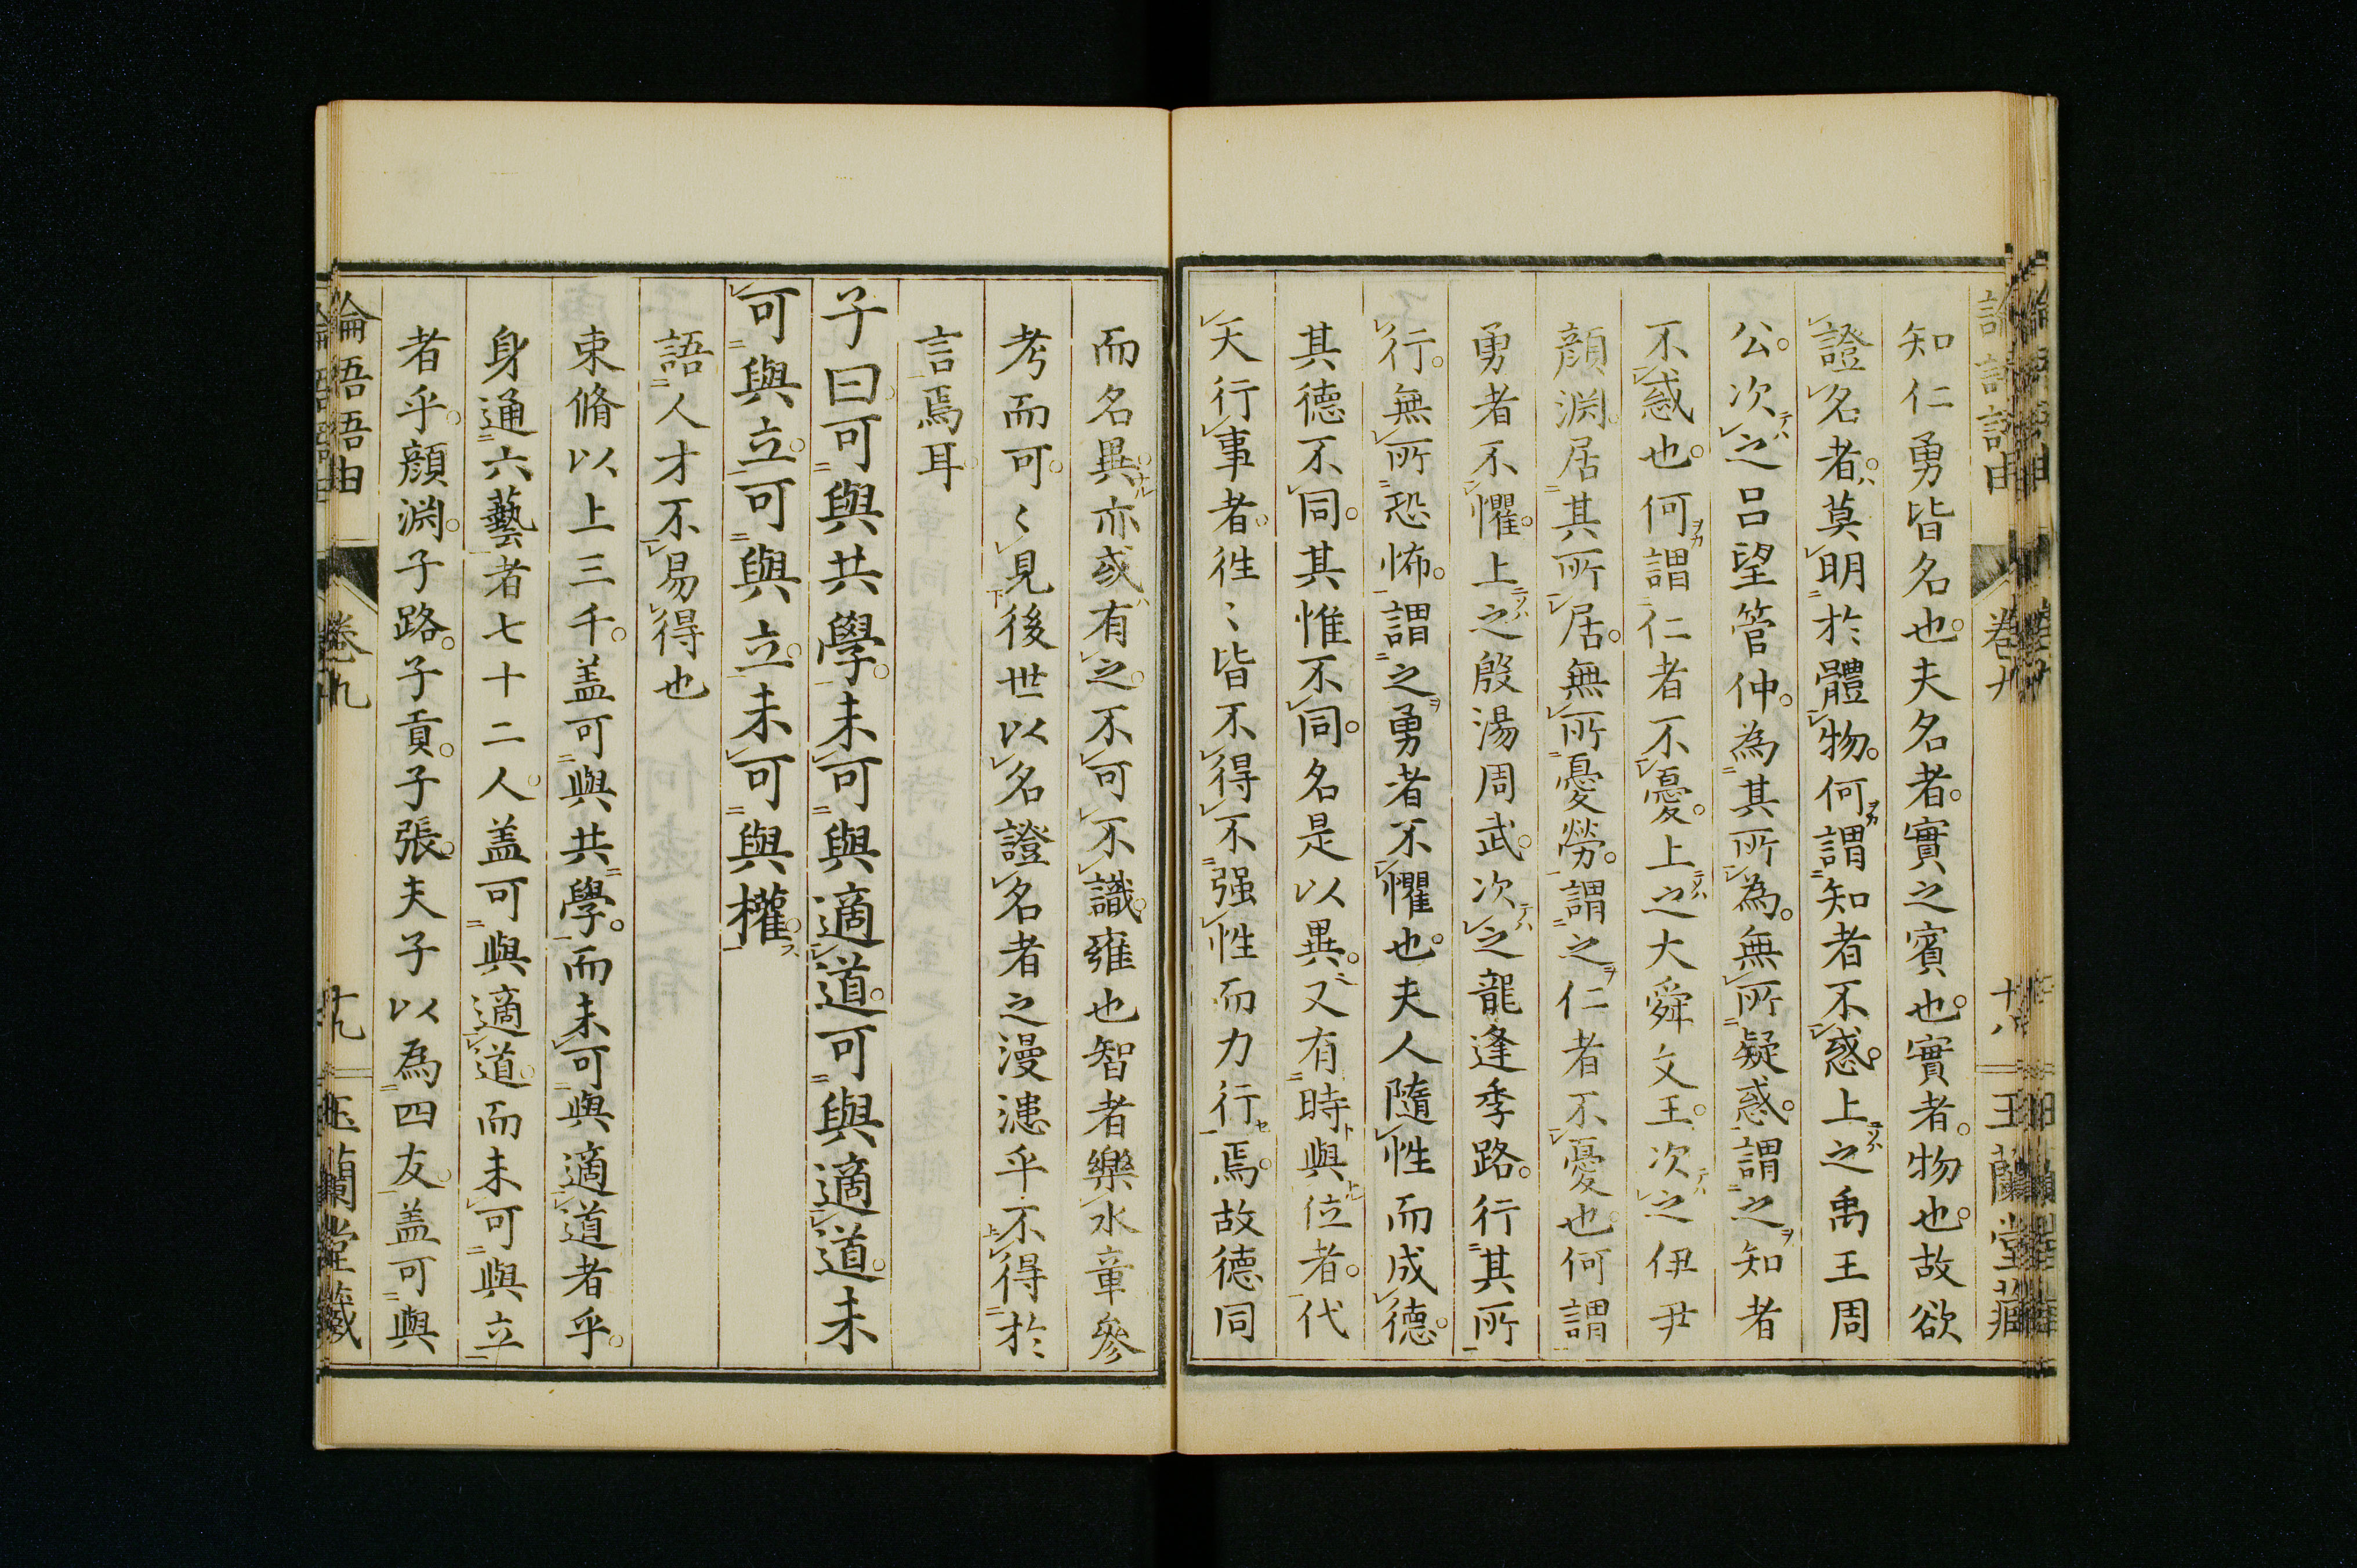 知仁勇皆名也。夫名者。實之賓也。實者。物也。故欲
證名者。莫明於體物。何謂知者不惑。上之禹王周
公。次之呂望管仲。為其所為。無所疑惑。謂之知者
不惑也。何謂仁者不憂。上之大舜文王。次之伊尹
顔淵。居其所居。無所憂勞。謂之仁者不憂也。何謂
勇者不懼。上之殷湯周武。次之龍逢季路。行其所
行。無所恐怖。謂之勇者不懼也。夫人隨性而成德。
其德不同。其惟不同。名是以異。又有時與位者。代
天行事者。徃〻皆不得不强性而力行焉。故德同
而名異。亦或有之。不可不識。雍也智者樂水章參
考而可。〻見後世以名證名者之漫漶乎不得於
言焉耳
子曰可與共學。未可與適道。可與適道。未
可與立。可與立。未可與權。
語人才不易得也
束脩以上三千。盖可與共學。而未可與適道者乎。
身通六藝者七十二人。盖可與適道。而未可與立
者乎。顔淵。子路。子貢。子張。夫子以為四友。盖可與
論語語由 卷九 十八 玉蘭堂藏
論語語由 卷九 十九 玉蘭堂藏